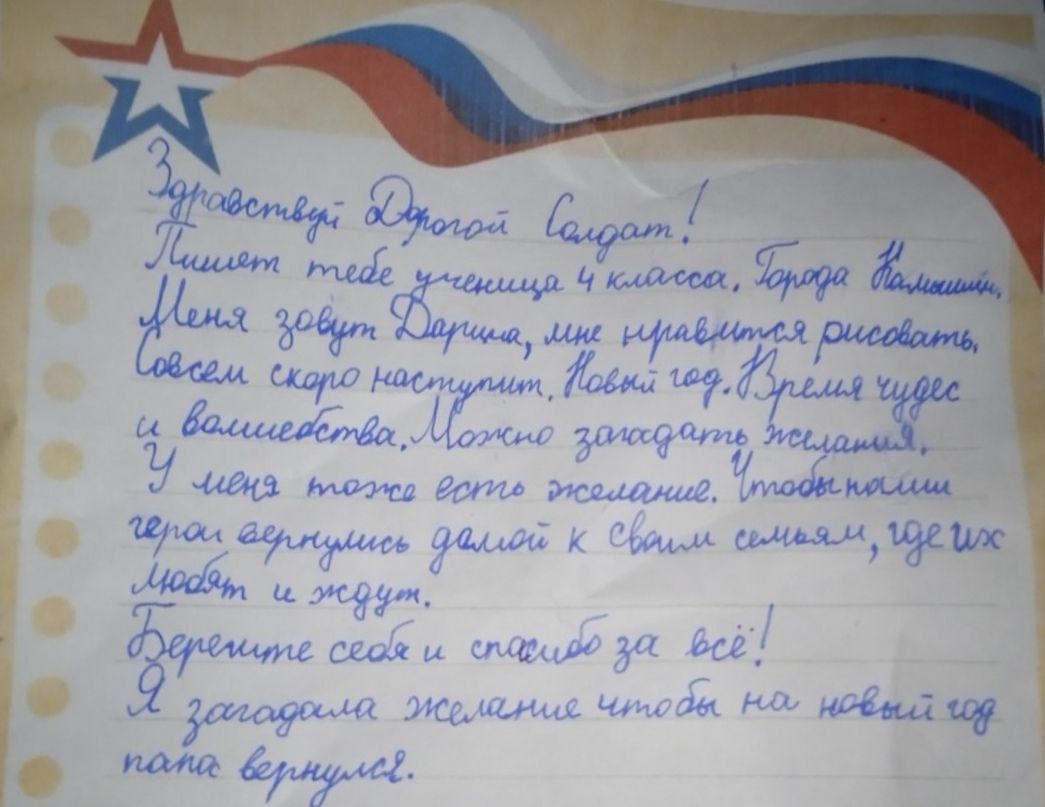 Здравствуй Дорогой Солдат!
Пишет тебе ученица 4 класса. Города Камышин.
Меня зовут Дарина, мне нравится рисовать.
Совсем скоро наступит. Новый год. Время чудес
и волшебства. Можно загадать желания.
У меня тоже есть желание. Чтобы наши
герои вернулись домой к своим семьям, где их
любят и ждут.
Берегите себя и спасибо за всё!
Я загадала желание чтобы на новый год
папа вернулся.